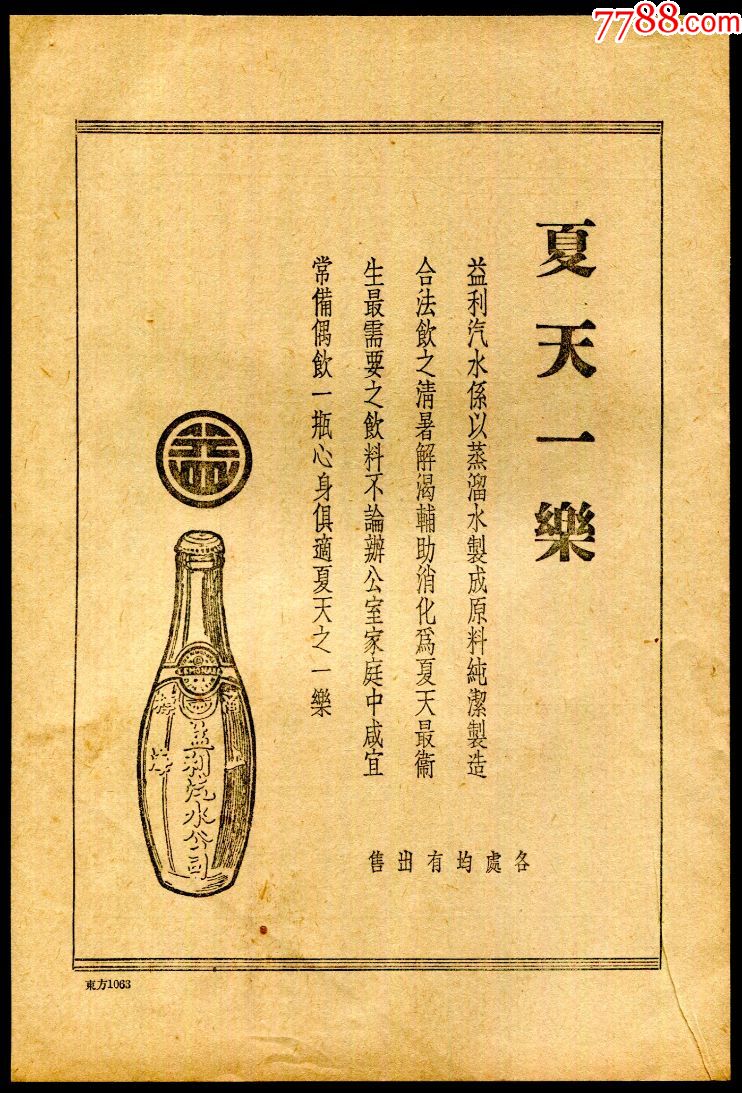 7788.com
夏天一樂
益利汽水係以蒸溜水製成原料純潔製造
合法飲之清暑解渴輔助消化爲夏天最衞
生最需要之飲料不論辦公室家庭中咸宜
常備偶飲一瓶心身俱適夏天之一樂
各處均有出售
益利汽水公司
東方1063